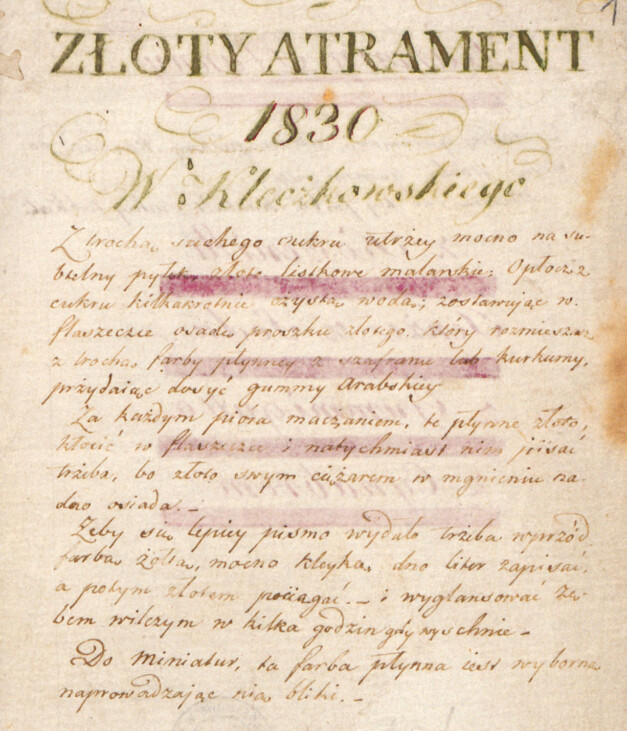 1
ZŁOTY ATRAMENT
1830
W: Kleczkowskiego
Z trochą suchego cukru utrzey mocno na su-
btelny pyłek złoto listkowe malarskie: Opłocz z
cukru kilkakrotnie czystą wodą; zostawując w
flaszeczce osadę proszku złotego, który rozmieszaz
z trochą farby płynney z szafranu lub kurkumy,
przydaiąc dosyć gummy Arabskiey
Za każdym pióra maczaniem, te płynne złoto,
kłócić w flaszeczce i natychmiast nim pisać
trzeba, bo złoto swym ciężarem w mgnieniu na
dno osiada._
Żeby się lepiey pismo wydało trzeba wprzód
farbą żółtą, mocno kleyką, dno liter zapisać,
a potym złotem pociągać._ i wyglansować zę-
bem wilczym w kilka godzin gdy wyschnie_
Do miniatur, ta farba płynna iest wyborna
naprowadzaiąc nią bliki._